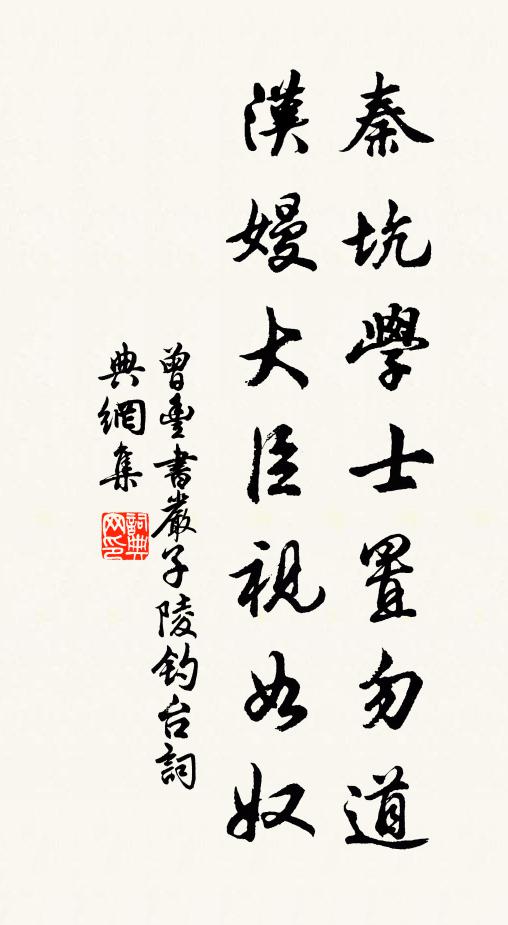 秦坑學士置勿道
漢嫚大臣視如奴
曾豐書嚴子陵釣台詞
典網集
詞典
网印